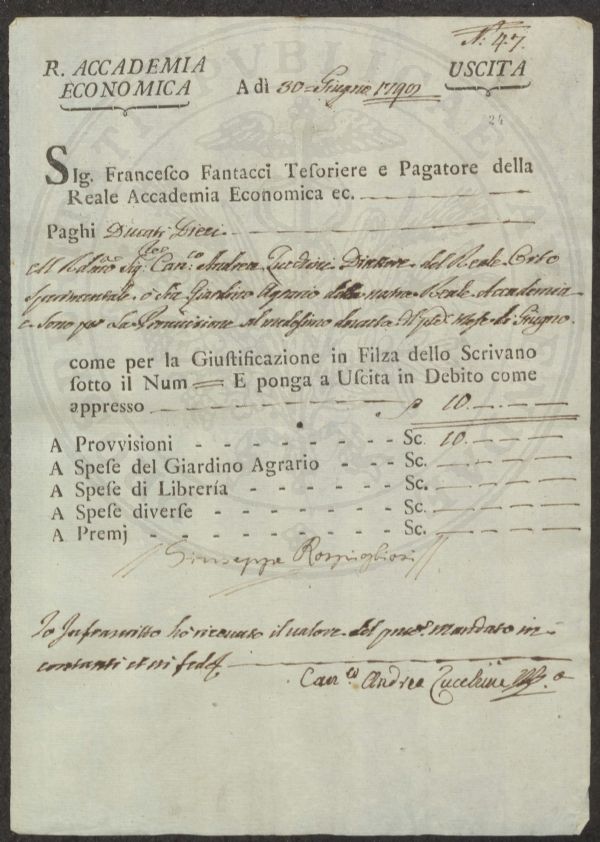 N.° 47.
R. ACCADEMIA
ECONOMICA
A dì 30 Giugno 1790
USCITA
24
SIg. Franceſco Fantacci Teſoriere e Pagatore della
Reale Accademia Economica ec.
Paghi Ducati Dieci.
Al Rdmo Sig. Canco Andrea Zucchini Direttore del Reale Orto
Sperimentale o sia Giardino Agrario della nostra Reale Accademia
e sono per La Provvisione al medesimo Mese di Giugno.
come per la Giuſtificazione in Filza dello Scrivano
ſotto il Num E ponga a Uſcita in Debito come
appreſſo 10
A Provviſioni - - - - - - - - - Sc. 10.
A Speſe del Giardino Agrario - - - - Sc.
A Speſe di Librería - - - - - - - Sc.
A Speſe diverſe - - - - - - - - Sc.
A Premj - - - - - - - - - - - Sc.
Giuseppe Rospigliosi
Io Infrascritto ho ricevuto il valore del pnte mandato in
contanti et in fede
Canco Andrea Zucchini